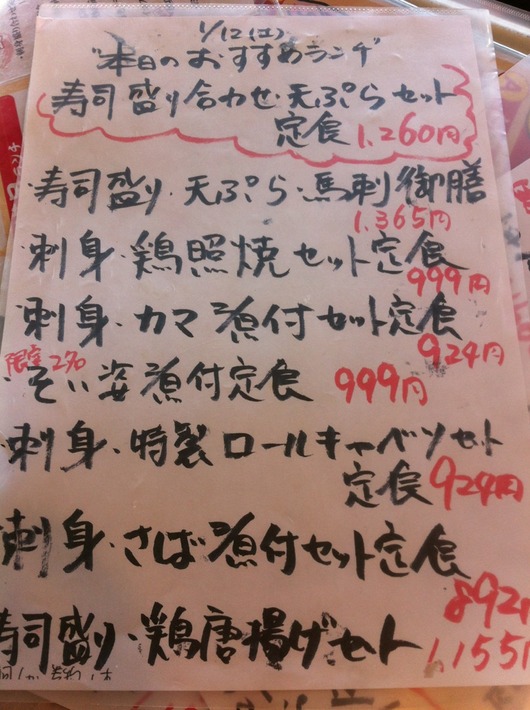 1/12(土)
"本日のおすすめランチ"
寿司盛り合わせ・天ぷらセット
定食 1,260円
寿司盛り・天ぷら・馬刺御膳
1,365円
刺身・鶏照焼セット定食
999円
刺身・カマ煮付セット定食
924円
限定2名
そい姿煮付定食 999円
刺身・特製ロールキャベツセット
定食 924円
刺身・さば煮付セット定食
892円
寿司盛り・鶏唐揚げセット 1,155円